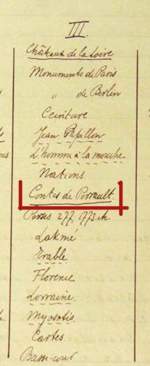 III
Châteaux de la Loire
Monuments de Paris
" de Berlin
Ceinture
Jean Papillon
L'homme à la mouche
Nations
Contes de Perrault
273
Lakmé
Florence
Lorraine
Myosotis
Cartes
Basse-cour